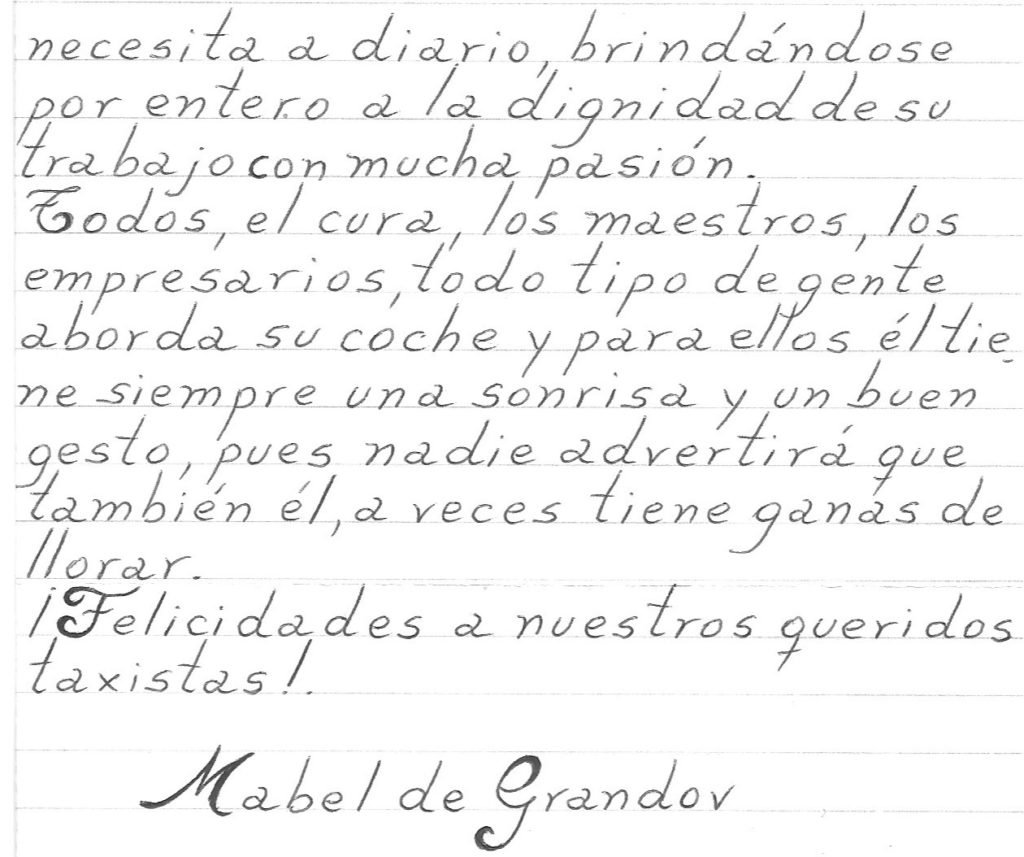 necesita a diario, brindándose
por entero a la dignidad de su
trabajo con mucha pasión.
Todos, el cura, los maestros, los
empresarios, todo tipo de gente
aborda su coche y para ellos él tie_
ne siempre una sonrisa y un buen
gesto, pues nadie advertirá que
también él, a veces tiene ganas de
llorar.
¡Felicidades a nuestros queridos
taxistas!.
Mabel de Grandov